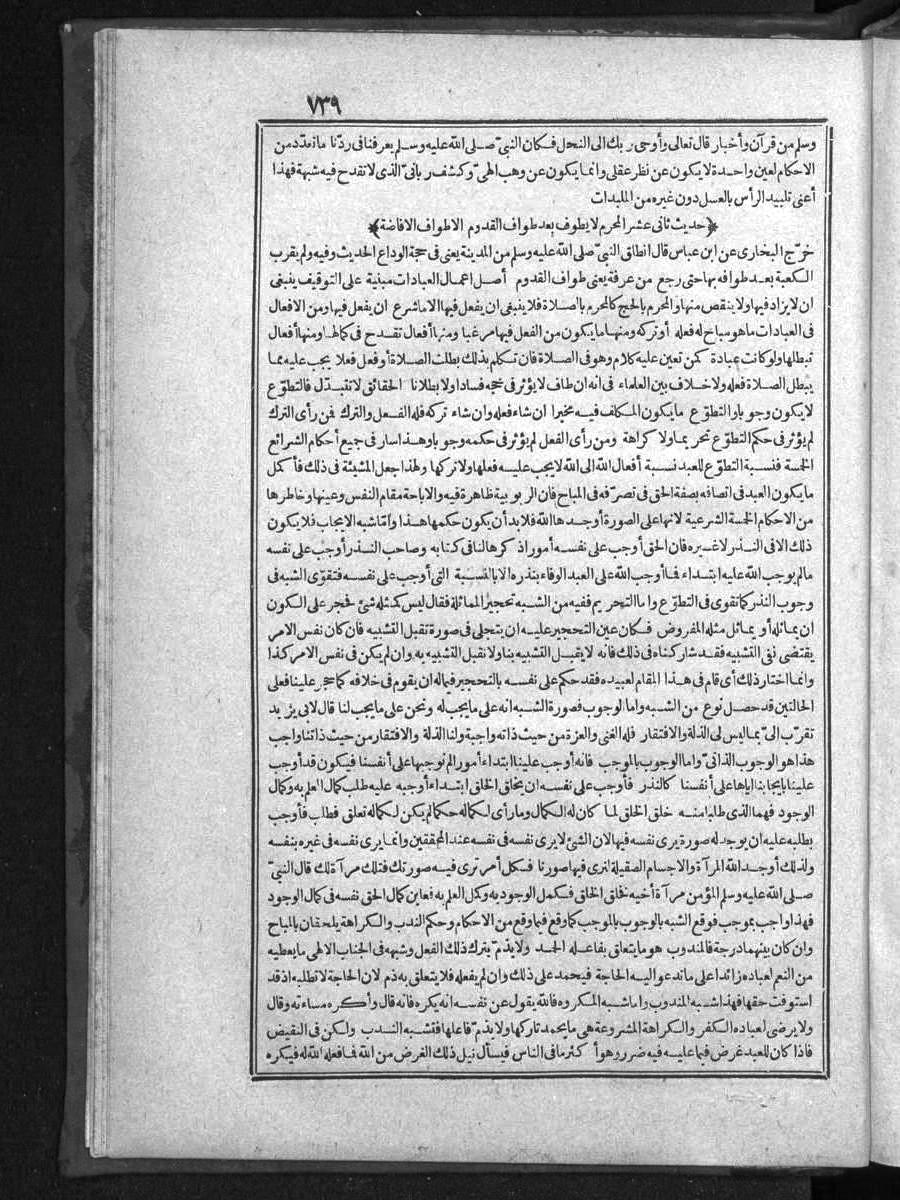 ٧٣٩
وسلم من قرآن وأخبار قال تعالى وأوحى ربك الى النحل فكان النبىّ صلى الله عليه وسلم يعرفنا فى ردّنا ما تعدّد من
الاحكام لعين واحدة لا يكون عن نظر عقلى وانما يكون عن وهب الهىّ وكشف ربانىّ الذى لا تقدح فيه شبهة فهذا
أعنى تلبيد الرأس بالعسل دون غيره من الملبدات
﴿حديث ثانى عشر المحرم لا يطوف بعد طواف القدوم الا طواف الافاضة﴾
خرّج البخارى عن ابن عباس قال انطلق النبىّ صلى الله عليه وسلم من المدينة يعنى فى حجة الوداع الحديث وفيه ولم يقرب
الكعبة بعد طوافه بها حتى رجع من عرفة يعنى طواف القدوم أصل اعمال العبادات مبنية على التوقيف ينبغى
ان لا يزاد فيها ولا ينقص منها والمحرم بالحج كالمحرم بالصلاة فلا ينبغى ان يفعل فيها الا ما شرع ان يفعل فيها ومن الافعال
فى العبادات ما هو مباح له فعله أو تركه ومنها ما يكون من الفعل فيها مرغبا ومنها أفعال تقدح فى كمالها ومنها أفعال
تبطلها ولو كانت عبادة كمن تعين عليه كلام وهو فى الصلاة فان تكلم بذلك بطلت الصلاة أو فعل فعلا يجب عليه مما
يبطل الصلاة فعله ولا خلاف بين العلماء فى انه ان طاف لا يؤثر فى حجه فسادا ولا بطلانا الحقائق لا تتبدّل فالتطوّع
لا يكون وجوبا والتطوّع ما يكون المكلف فيه مخيرا ان شاء فعله وان شاء تركه فله الفعل والترك فمن رأى الترك
لم يؤثر فى حكم التطوّع تحريما ولا كراهة ومن رأى الفعل لم يؤثر فى حكمه وجوبا وهذا سار فى جميع أحكام الشرائع
الخسة فنسبة التطوّع للعبد نسبة أفعال الله الى الله لا يجب عليه فعلها ولا تركها ولهذا جعل المشيئة فى ذلك فأكمل
ما يكون العبد فى اتصافه بصفة الحق فى تصرّفه فى المباح فان الربوبية ظاهرة فيه والاباحة مقام النفس وعينها وخاطرها
من الاحكام الخسة الشرعية لانها على الصورة أوجدها الله فلا بد أن يكون حكمها هذا وأمّا شبه الايجاب فلا يكون
ذلك الا فى النذر لا غيره فان الحق أوجب على نفسه أمورا ذكرها لنا فى كتابه وصاحب النذر أوجب على نفسه
ما لم يوجب الله عليه ابتداء فما أوجب الله على العبد الوفاء بنذره الا بالنسبة التى أوجب على نفسه فتقوّى الشبه فى
وجوب النذر كما تقوى فى التطوّع واما التحريم ففيه من الشبه تحجير المماثلة فقال ليس كمثله شئ فحجر على الكون
ان يماثله أو يماثل مثله المفروض فكان عين التحجير عليه ان يتجلى فى صورة تقبل التشبيه فان كان نفس الامر
يقتضى نفى التشبيه فقد شاركناه فى ذلك فانه لا يقبل التشبيه بنا ولا نقبل التشبيه به وان لم يكن فى نفس الامر كذا
وانما اختار ذلك أى قام فى هذا المقام لعبيده فقد حكم على نفسه بالتحجير فيما له ان يقوم فى خلافه كما حجر علينا فعلى
الحالتين قد حصل نوع من الشبه واما الوجوب فصورة الشبه انه على ما يجب له ونحن على ما يجب لنا قال لابى يزيد
تقرّب الىّ بما ليس لى الذلة والافتقار فله الغنى والعزة من حيث ذاته واجبة ولنا الذلة والافتقار من حيث ذاتنا واجب
هذا هو الوجوب الذاتىّ واما الوجوب بالموجب فانه أوجب علينا ابتداء أمور الم نوجبها على أنفسنا فيكون قد أوجب
علينا بايجابنا اياها على أنفسنا كالنذر فأوجب على نفسه ان يخلق الخلق ابتداء أوجبه عليه طلب كمال العلم به وكمال
الوجود فهما الذى طلبا منه خلق الخلق لما كان له الكمال وما رأى لكماله حكما لم يكن لكماله تعلق فطلب فأوجب
بطلبه عليه ان يوجد له صورة يرى نفسه فيها لان الشئ لا يرى نفسه فى نفسه عند المحققين وانما يرى نفسه فى غيره بنفسه
ولذلك أوجد الله المرآة والاجسام الصقيلة لنرى فيها صورنا فكل أمر ترى فيه صورتك فتلك مرآة لك قال النبىّ
صلى الله عليه وسلم المؤمن مرآة أخيه فخلق الخلق فكمل الوجود به وكمل العلم به فعاين كمال الحق نفسه فى كمال الوجود
فهذا واجب بموجب فوقع الشبه بالوجوب بالموجب كما وقع فيما وقع من الاحكام وحكم الندب والكراهة يلحقان بالمباح
وان كان بينهما درجة فالمندوب هو ما يتعلق بفاعله الحمد ولا يذمّ بترك ذلك الفعل وشبهه فى الجناب الالهى ما يعطيه
من النعم لعباده زائدا على ما تدعو اليه الحاجة فيحمد على ذلك وان لم يفعله فلا يتعلق به ذم لان الحاجة لا تطلبه اذ قد
استوفت حقها فهذا شبه المندوب واما شبه المكروه فالله يقول عن نفسه انه يكره فانه قال وأكره مساءته وقال
ولا يرضى لعباده الكفر والكراهة المشروعة هى ما يحمد تاركها ولا يذمّ فاعلها فتشبه الندب ولكن فى النقيض
فاذا كان للعبد غرض فيما عليه فيه ضرر وهو أكثر ما فى الناس فيسأل نيل ذلك الغرض من الله فما فعله الله له فيكره